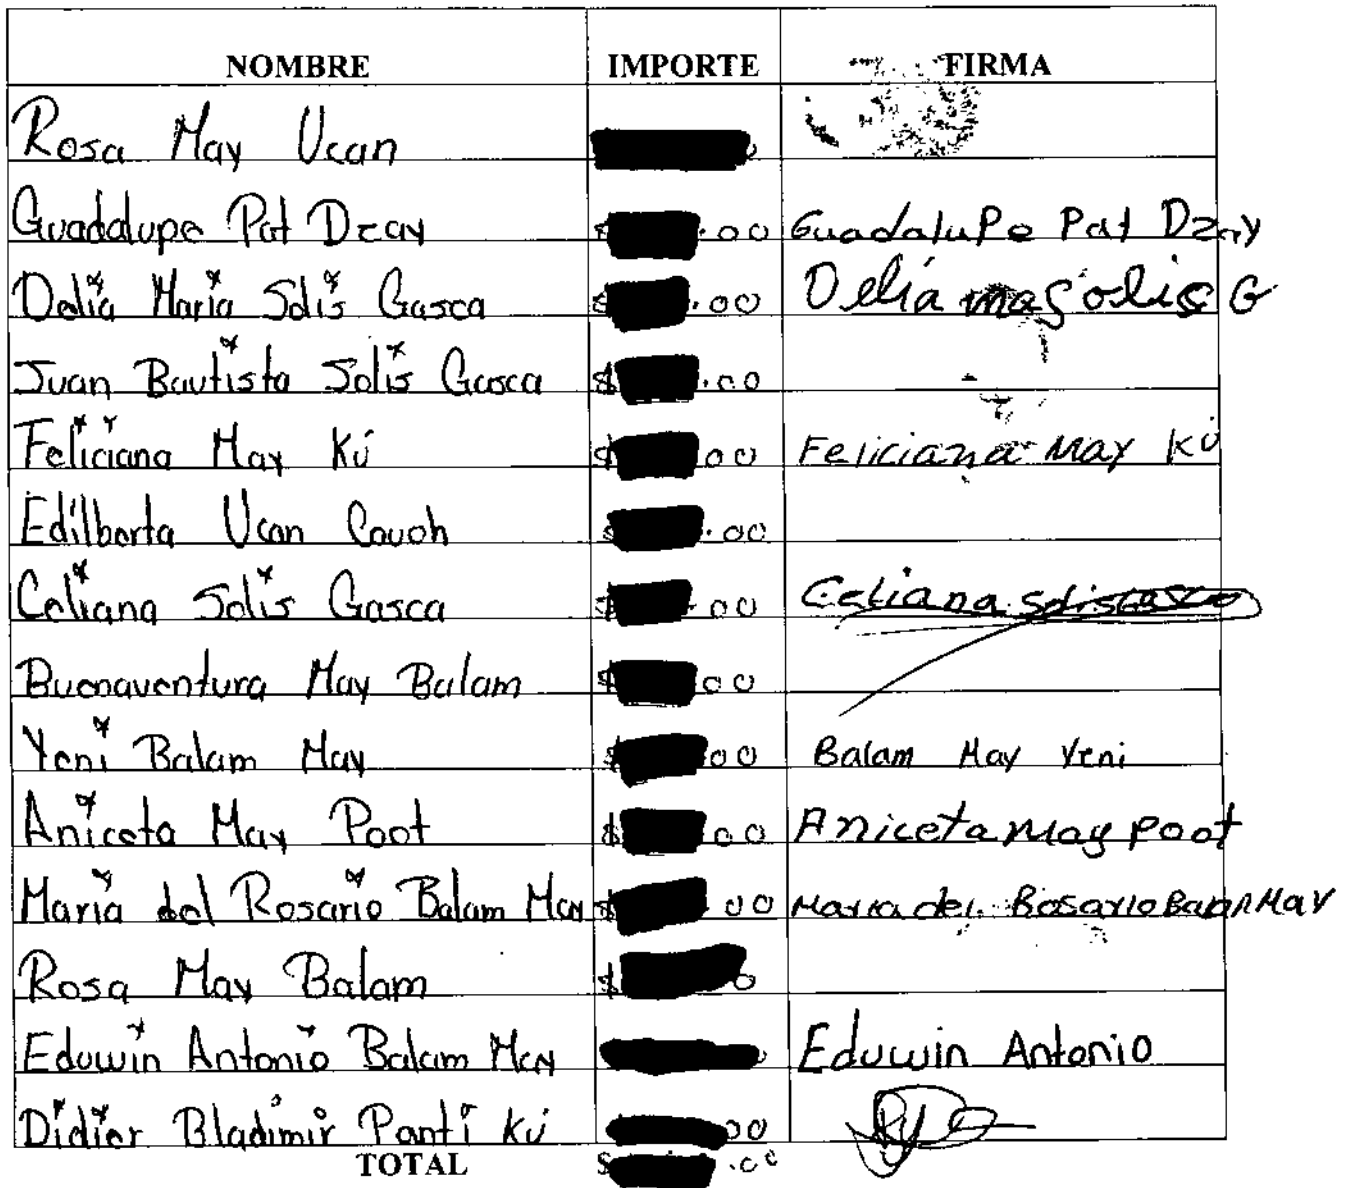 NOMBRE IMPORTE FIRMA
Rosa May Ucan
Guadalupe Pat Dzay $ .00 Guadalupe Pat Dzay
Delia Maria Solis Gasca $ .00 Delia ma Solis G
Juan Bautista Solis Gasca $ .00
Feliciana May Kú $ 00 Feliciana May Kú
Edilberta Ucan Cauoh $ .00
Celiana Solis Gasca $ .00 Celiana Solis Gasca
Buenaventura May Balam $ 00
Yeni Balam May $ 00 Balam May Yeni
Aniceta May Poot $ 00 Aniceta May Poot
Maria del Rosario Balam May $ 00 Maria del Rosario Balam May
Rosa May Balam $ 0
Eduwin Antonio Balam May Eduwin Antonio
Didier Bladimir Panti Kú 00
TOTAL $ .00